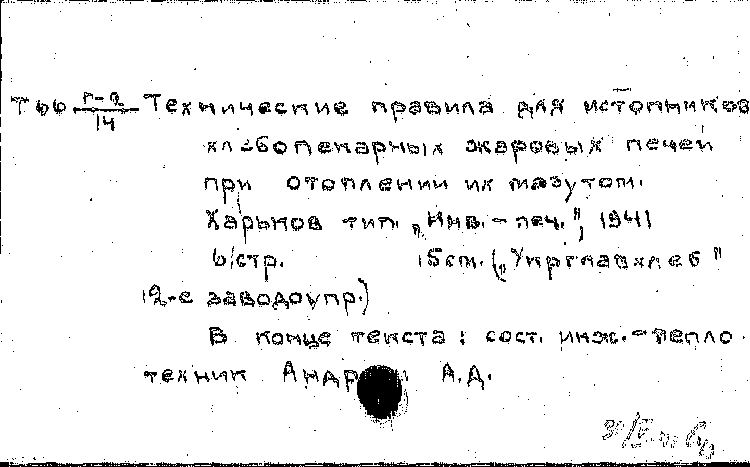 Т66 г-2/14 Технические правила для истопников
хлебопекарных жаровых печей
при отоплении их мазутом.
Харьков тип. „Инв.-печ.", 1941
6 стр. 15 см. („Укрглавхлеб"
2-е заводоупр.)
В конце текста: сост. инж.-тепло-
техник А.Д.